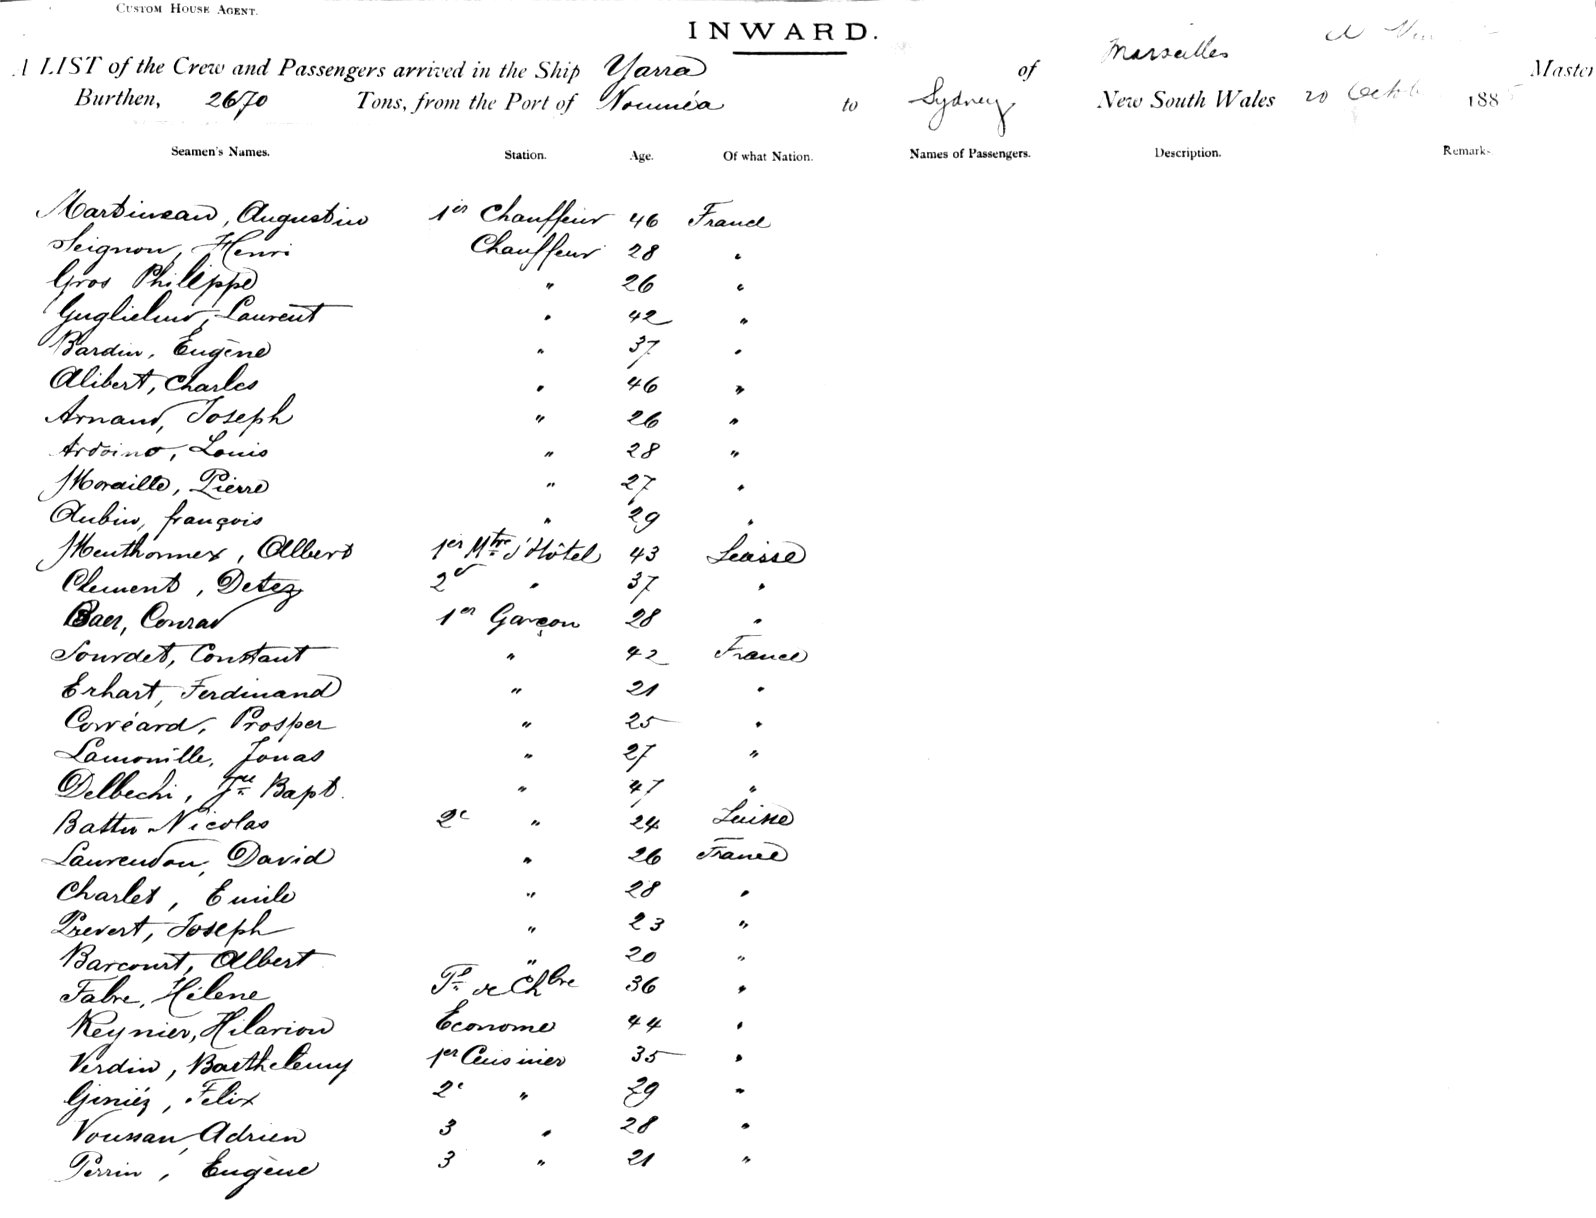 CUSTOM HOUSE AGENT.
INWARD.
A LIST of the Crew and Passengers arrived in the Ship Yarra of Marseilles Master
Burthen, 2670 Tons, from the Port of Nouméa to Sydney New South Wales 20 Octob 188
Seamen's Names. Station. Age. Of what Nation. Names of Passengers. Description. Remarks
Martineau, Augustin 1er Chauffeur 46 France
Seignon, Henri Chauffeur 28 "
Gros Philippe " 26 "
Guglielmo, Laurent " 42 "
Bardin, Eugène " 37 "
Alibert, Charles " 46 "
Arnaud, Joseph " 26 "
Ardoino, Louis " 28 "
Moraille, Pierre " 27 "
Aubin, françois " 29 "
Menthonnex, Albert 1er Mtre d'Hôtel 43 Suisse
Clement, Detez 2d " 37 "
Baer, Conrad 1er Garçon 28 "
Sourdet, Constant " 42 France
Erhart, Ferdinand " 21 "
Corréard, Prosper " 25 "
Lamonille, Jonas " 27 "
Delbechi, Jn Bapt. " 47 "
Battu Nicolas 2e " 24 Suisse
Laurendon, David " 26 France
Charlet, Emile " 28 "
Prevert, Joseph " 23 "
Barcourt, Albert " 20 "
Fabre, Hélène de Chbre 36 "
Reynier, Hilarion Econome 44 "
Verdin, Barthelemy 1er Cuisinier 35 "
Giniéz, Felix 2e " 29 "
Voussan, Adrien 3 " 28 "
Perrin, Eugène 3 " 21 "